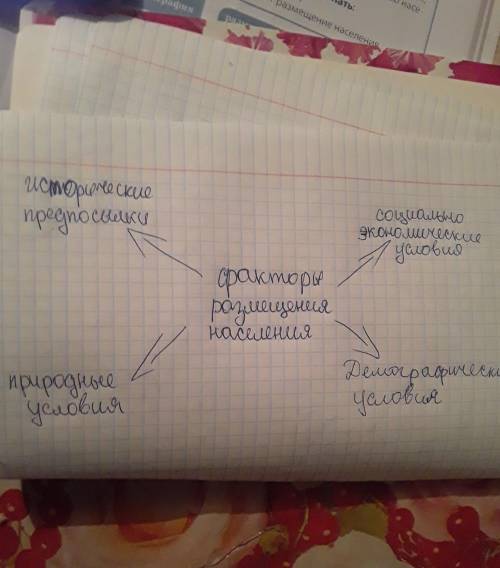 графия
нать:
размещение населения
исторические
предпосылки
социально
экономические
условия
факторы
размещения
населения
природные
условия
Демографически
условия